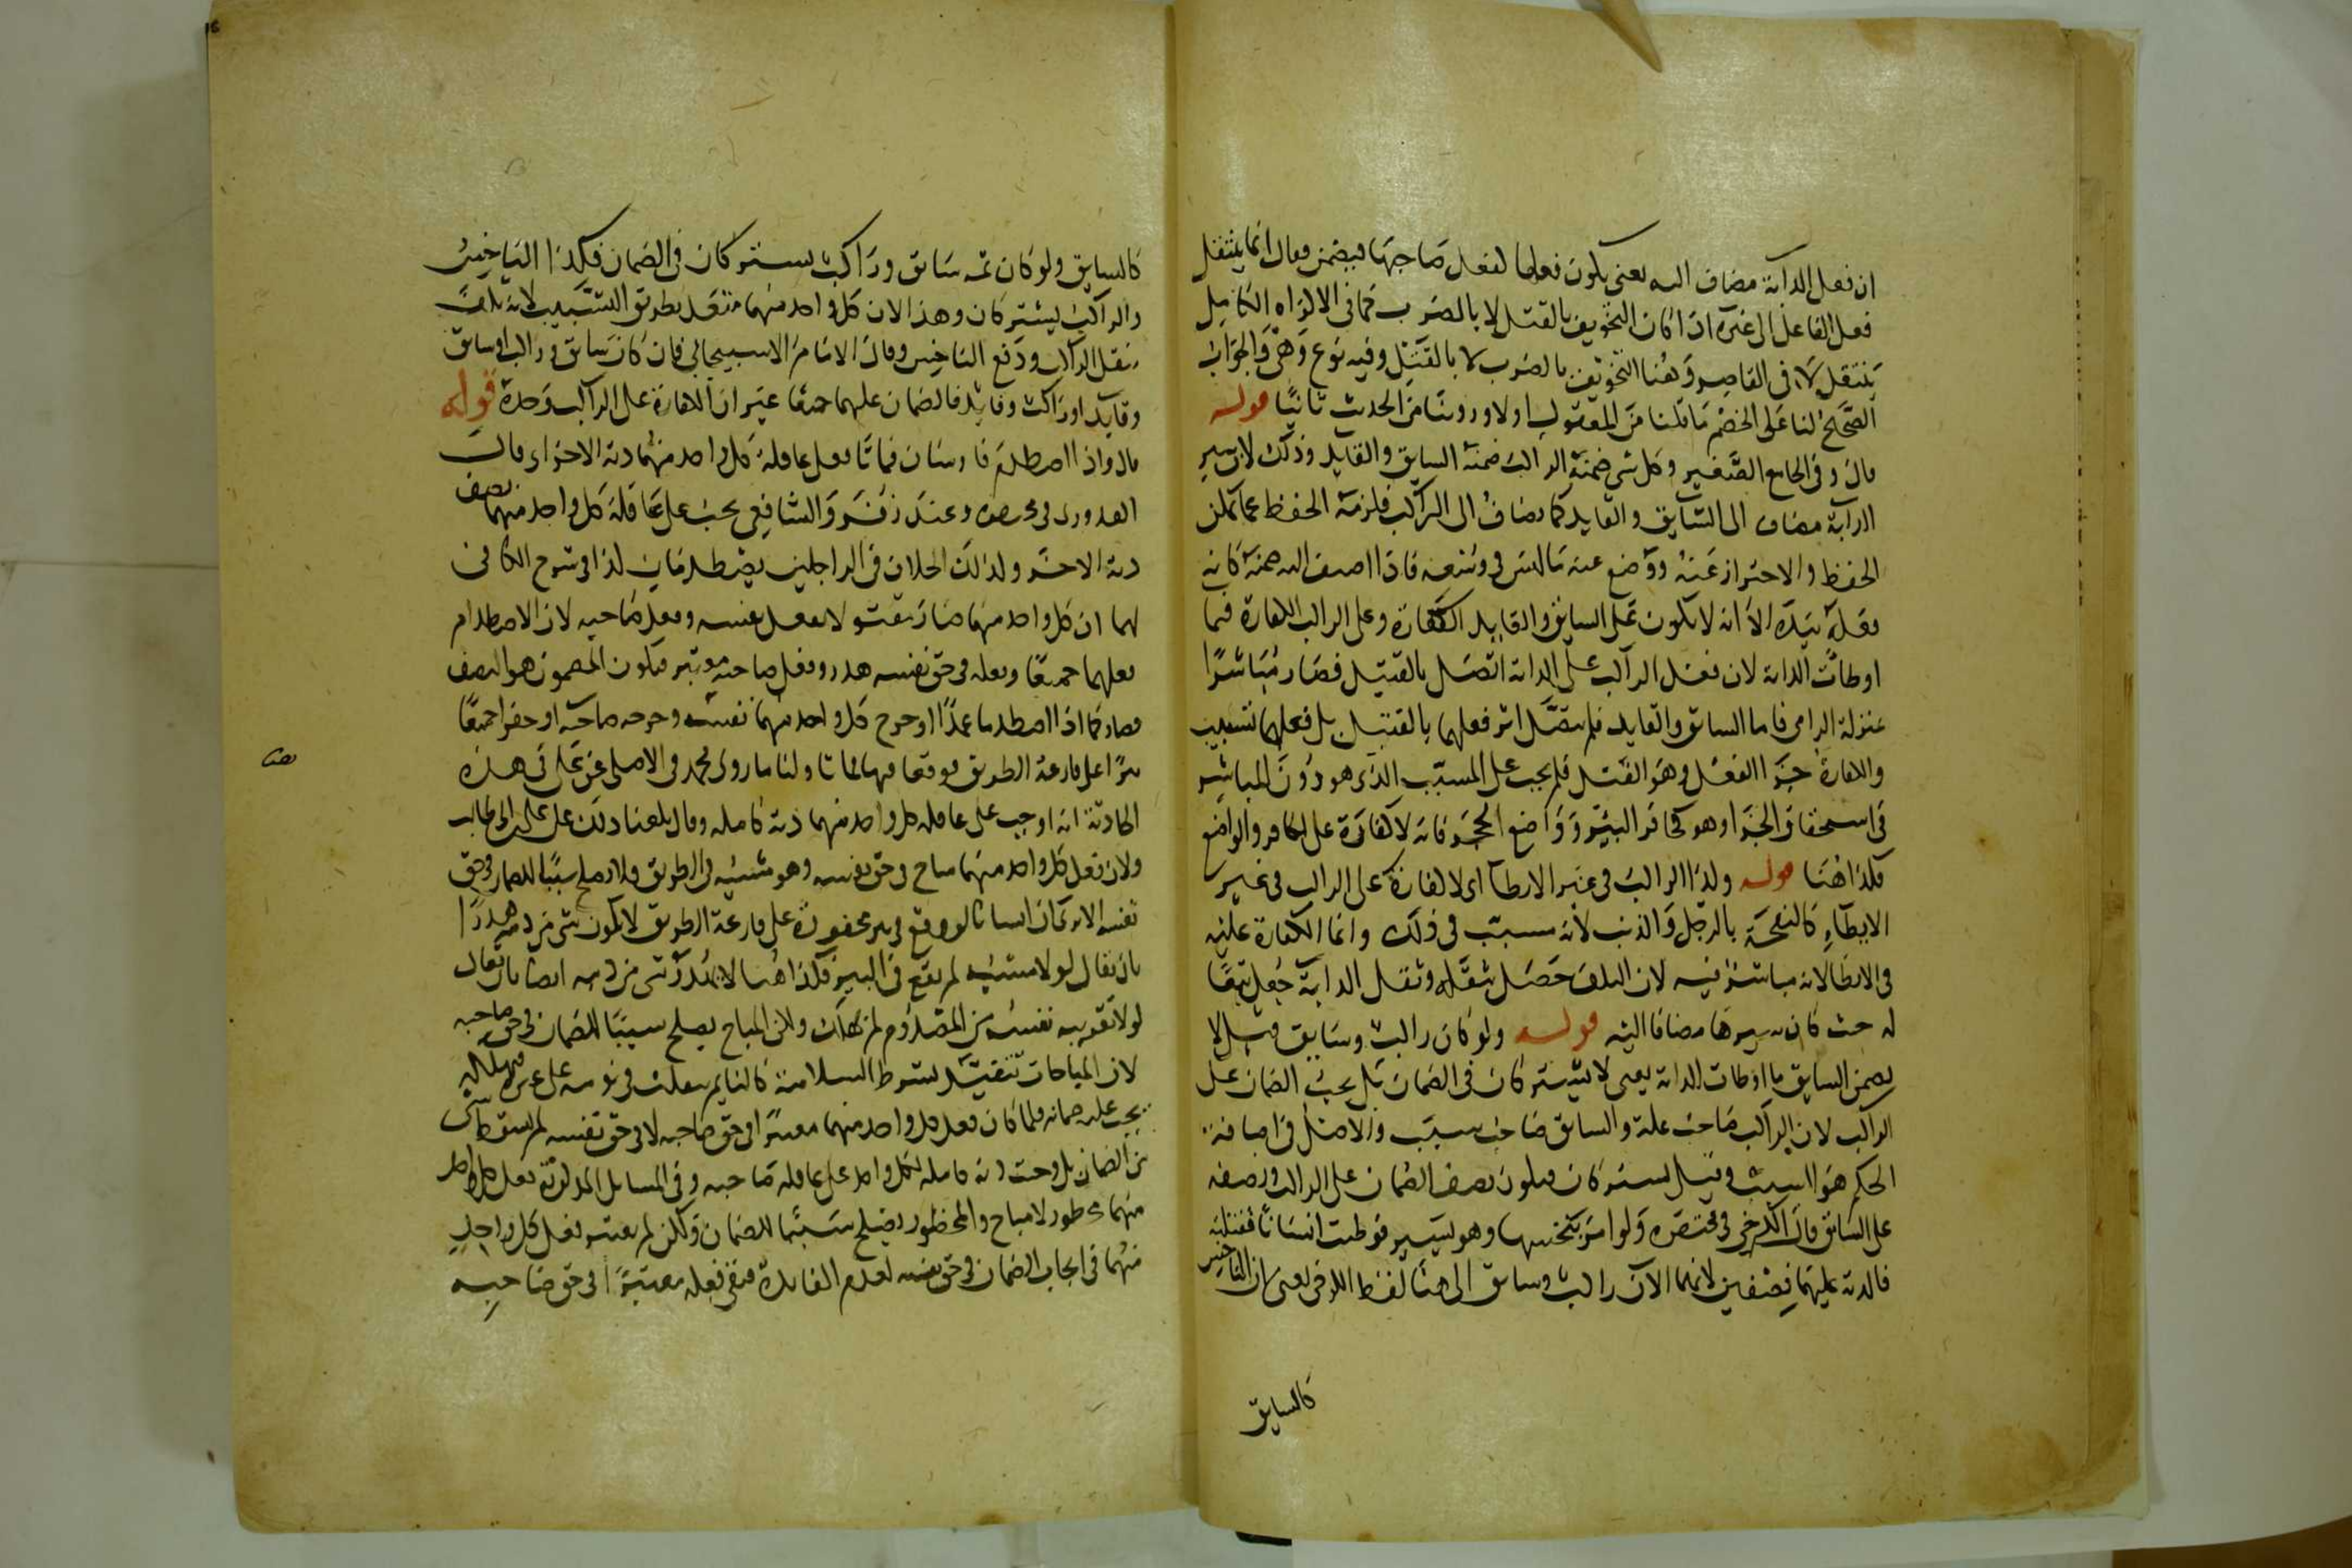 ان فعل الدابة مضاف اليه يعني يكون فعلها كفعل صاحبها فيضمن وقال انما ينتقل
فعل الفاعل الى غيره اذا كان التخويف بالقتل لا بالضرب كما في الاكراه الكامل
ينتقل لا في القاصر وهنا التخويف بالضرب لا بالقتل وفيه نوع وهي والجواب
الصحيح لنا على الخصم ما قلنا من المعقول اولا وروينا من الحديث ثانيا قوله
قال وفي الجامع الصغير وكل شي ضمنه الراكب ضمنه السايق والقايد وذلك لان سير
الدابة مضاف الى السايق والقايد كما يضاف الى الراكب فلزمه الحفظ عما يمكن
الحفظ والاحتراز عنه ووضع عنه ما ليس في وسعه فاذا اضيف اليه ضمنه كانه
فعله بيده الا انه لا يكون على السايق والقايد الكفارة وعلى الراكب الكفارة فيما
اوطات الدابة لان فعل الراكب على الدابة اتصل بالقتيل فصار مباشرا
بمنزلة الرامي فاما السايق والقايد فلم يتصل اثر فعلهما بالقتيل بل فعلهما تسبيب
والكفارة جزا الفعل وهو القتل فلم يجب على المسبب الذي هو دون المباشر
في استحقاق الجزا وهو كحافر البير وواضع الحجر فانه لا كفارة على الحافر والواضع
فكذا هنا قوله وكذا الراكب في غير الايطا اي لا كفارة على الراكب في غير
الايطاء كالنفحة بالرجل والذنب لانه مسبب في ذلك وانما الكفارة عليه
في الايطا لانه مباشر فيه لان التلف حصل بثقله وثقل الدابة جعل تبعا
له حيث كان سيرها مضافا اليه قوله ولو كان راكب وسايق قيل لا
يضمن السايق ما اوطات الدابة يعني لا يشتركان في الضمان بل يجب الضمان على
الراكب لان الراكب صاحب علة والسايق صاحب سبب والاصل في اضافة
الحكم هو السبب وقيل يشتركان فيكون نصف الضمان على الراكب ونصفه
على السايق قال الكرخي في مختصره ولو امر بنخسها وهو يسير فوطيت انسانا فقتلته
فالدية عليهما نصفين لانهما الان راكب وسايق الى هنا لفظ الكرخي يعني ان الناخس
كالسايق
كالسايق ولو كان ثمه سايق وراكب يشتركان في الضمان فكذا الناخس
والراكب يشتركان وهذا لان كل واحد منهما متعد بطريق التسبيب لانه تلف
بثقل الراكب ودفع الناخس وقال الامام الاسبيجابي فان كان سايق وراكب او سايق
وقايد او راكب وقايد فالضمان عليهما جميعا غير ان الكفارة على الراكب وحده قوله
قال واذا اصطدم فارسان فماتا فعلى عاقلة كل واحد منهما دية الاخر اي قال
القدوري في مختصره وعند زفر والشافعي يجب على عاقلة كل واحد منهما نصف
دية الاخر وكذلك الخلاف في الراجلين يصطدمان كذا في شرح الكافي
لهما ان كل واحد منهما صار مقتولا بفعل نفسه وفعل صاحبه لان الاصطدام
فعلهما جميعا وفعله في حق نفسه هدر وفعل صاحبه معتبر فيكون المضمون هو النصف
فصار كما اذا اصطدما عمدا او جرح كل واحد منهما نفسه وجرحه صاحبه او حفرا جميعا
بيرا على قارعة الطريق فوقعا فيها فماتا ولنا ما روى محمد في الاصل عن علي في هذه
الحادثة انه اوجب على عاقلة كل واحد منهما دية كاملة وقال بلغنا ذلك عن علي بن ابي طالب
ولان فعل كل واحد منهما مباح في حق نفسه وهو مشيه في الطريق فلا يصلح سببا للضمان في حق
نفسه الا ترى ان انسانا لو وقع في بير محفورة على قارعة الطريق لا يكون شي من دمه هدرا
بان يقال لولا مشيه لم يقع في البير فكذا هنا لا يهدر شي من دمه ايضا بان يقال
لولا تقريبه نفسه من المصدوم لم يهلك ولكن المباح يصلح سببا للضمان في حق صاحبه
لان المباحات تتقيد بشرط السلامة كالنايم ينقلب في نومه على غيره فيهلك
يجب عليه ضمانه فلما كان فعل كل واحد منهما معتبرا في حق صاحبه لا في حق نفسه لم يسقط شي
من الضمان بل وجبت دية كاملة لكل واحد على عاقلة صاحبه وفي المسايل المذكورة فعل كل واحد
منهما محظور لا مباح والمحظور يصلح سببا للضمان ولكن لم يعتبر فعل كل واحد
منهما في ايجاب الضمان في حق نفسه لعدم الفايدة فبقي فعله معتبرا في حق صاحبه